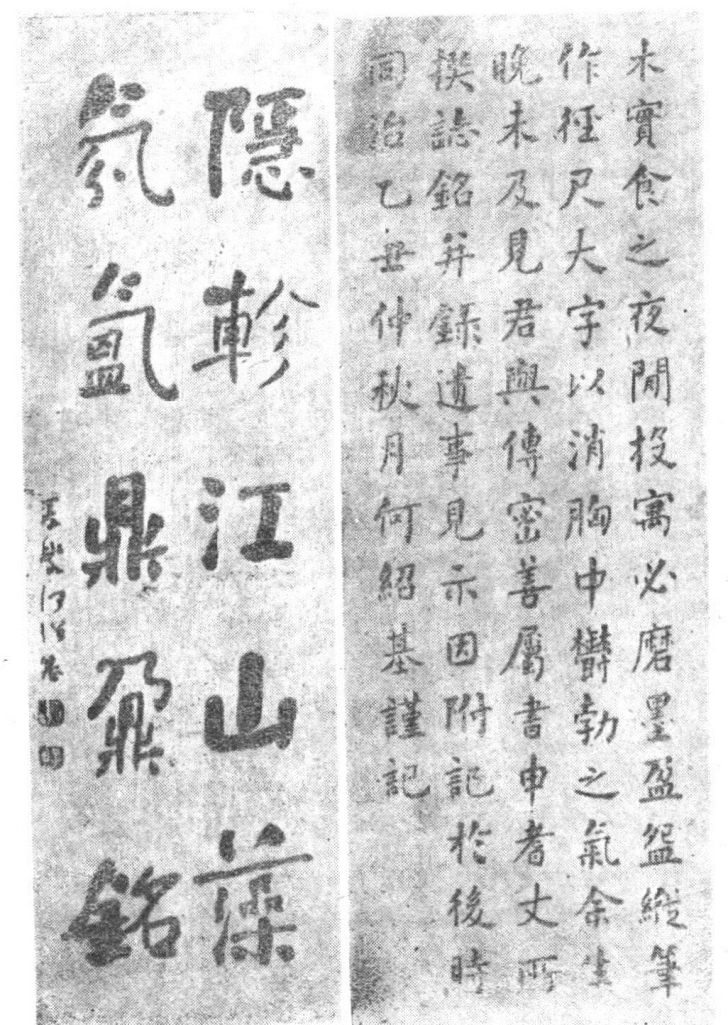 木實食之夜閒投寓必磨墨盈盌縱筆
作徑尺大字以消胸中鬱勃之氣余生
晚未及見君與傳密善屬書申耆丈所
撰誌銘并錄遺事見示因附記於後時
同治乙丑仲秋月何紹基謹記
隱軫江山藻
氛氳鼎鼐銘